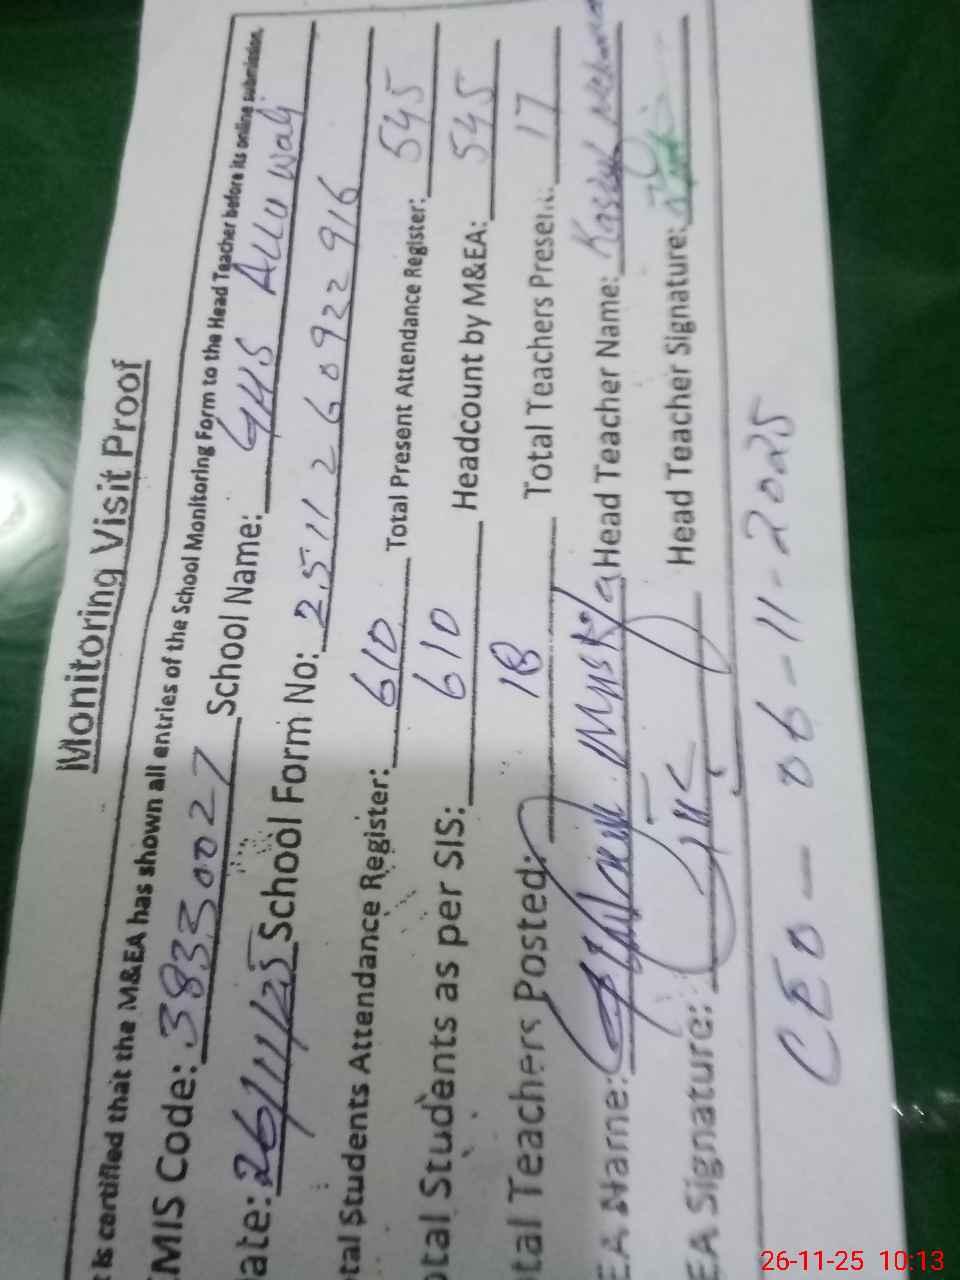 Monitoring Visit Proof
t is certified that the M&EA has shown all entries of the School Monitoring Form to the Head Teacher before its online submission.
MIS Code: 38330027 School Name: GHS Allu Wali
ate: 26/11/25 School Form No: 2511260922916
tal Students Attendance Register: 610 Total Present Attendance Register: 545
otal Students as per SIS: 610 Headcount by M&EA: 545
otal Teachers Posted: 18 Total Teachers Present: 17
EA Name: Head Teacher Name:
EA Signature: Head Teacher Signature:
CEO - 06-11-2025
26-11-25 10:13